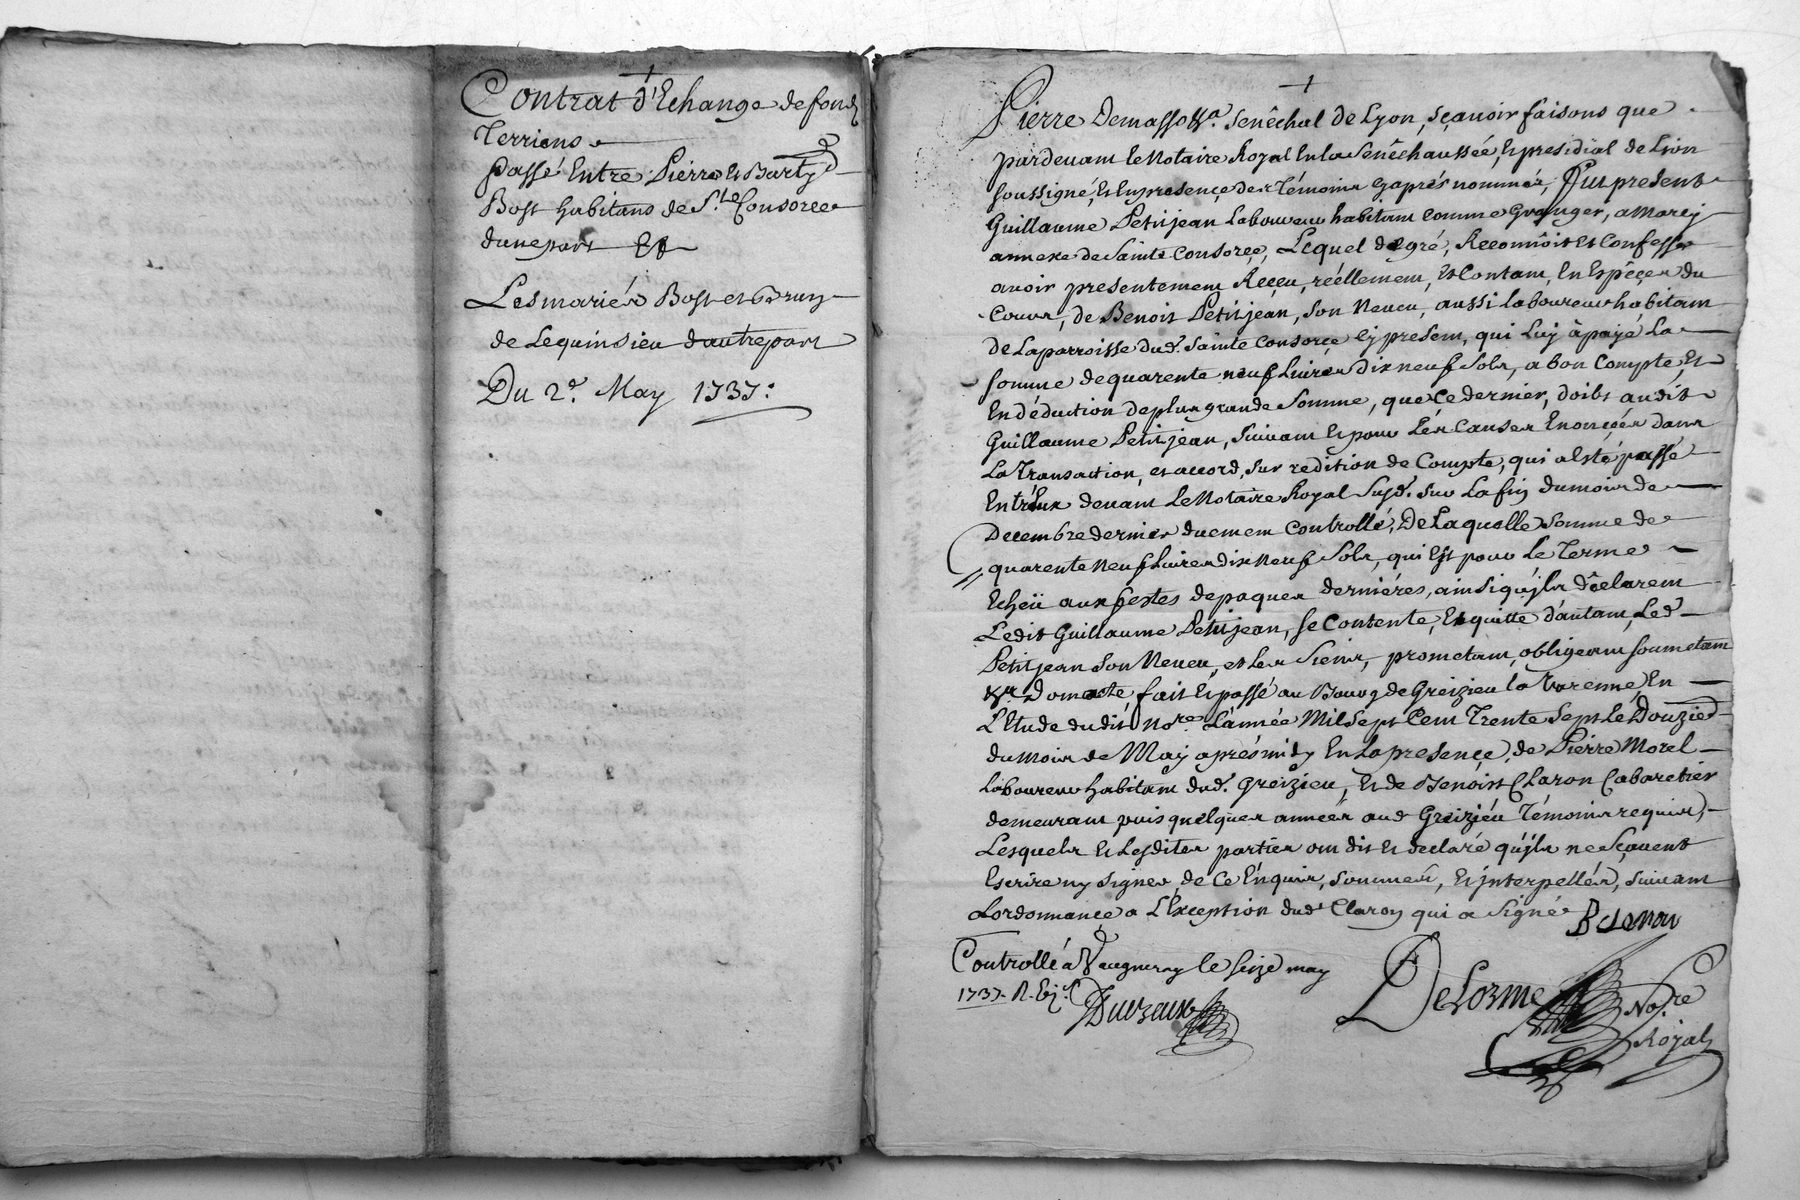 Contrat d'Echange de fonds
Terriens
passé Entre Pierre et Barty
Bost habitans de S.te Consorce
dune part Et
Les mariés Bost et Bruy
de Lequinsieu dautre part
Du 2.e May 1737:
Pierre Demasso &a. Senêchal de Lyon, sçavoir faisons que
pardevant le Notaire Royal En la Senêchaussée, et presidial de Lion
soussigné, et En presençe des Témoins cy aprés nommés, fut present
Guillaume Petitjean Laboureur habitant comme Granger, a Marcy
annexe de Sainte Consorçe, Lequel de gré, Reconnoît et Confesse
avoir presentement Reçeu, réellement, et Contant, En Espêçes du
Cours, de Benoit Petitjean, Son Neveu, aussi laboureur habitant
de La parroisse dud. Sainte Consorce cy present, qui Luy à payé La
somme de quarente neuf Livres dix neuf Sols, a bon Compte, Et
En déduction de plus grande Somme, que Ce dernier, doibt audit
Guillaume Petitjean, Suivant et pour Les Causes Enonçées dans
La Transaction, et accord, Sur redition de Compte, qui a Esté passé
Entr'Eux devant Le Notaire Royal Susd. Sur La fin du mois de
Decembre dernier duement Controllé, De Laquelle Somme de
quarente neuf Livres dix neuf Sols, qui Est pour Le Terme
Echeü aux festes de paques derniéres, ainsi qu'jls déclarent
Ledit Guillaume Petitjean, se Contente, Et quitte d'autant, Led.
Petitjean Son Neveu, et Les Siens, prometant, obligeant soumetant
&a. Dont acte fait et passé au Bourg de Greizieu la Varenne, En
L'Etude dudit No.re L'année Mil Sept Cent Trente Sept Le Douzie.
du mois de May aprés midy En La presençe, de Pierre Morel
Laboureur habitant dud. Greizieu, Et de Benoist Claron Cabaretier
demeurant puis quelques années aud Greiziéu Témoins requis,
Lesquels et Lesdites parties ont dit et declaré qu'jls ne sçavent
Escrire ny signer, de Ce Enquis, sommés, et jnterpellés, suivant
L'ordonnançe a L'Exception dud. Claron qui a Signé
Controllé à Vaugneray le seize may
1737. R.
DeLorme No.re
Royal